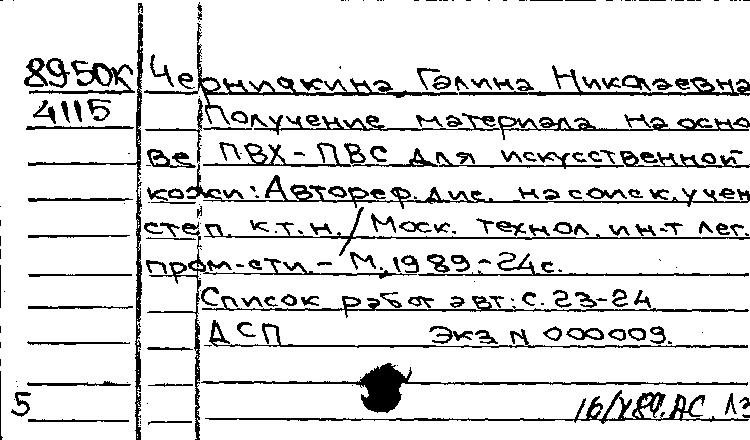 8950К Чернианкина Галина Николаевна
4115 Получение материала на осно
ве ПВХ-ПВС для искусственной
кожи: Автореф. дис. на соиск. учен
степ. к.т.н. / Моск. технол. ин-т лег.
пром-сти. - М., 1989. - 24 с.
Список работ авт: с. 23-24
ДСП Экз N 000009.
5